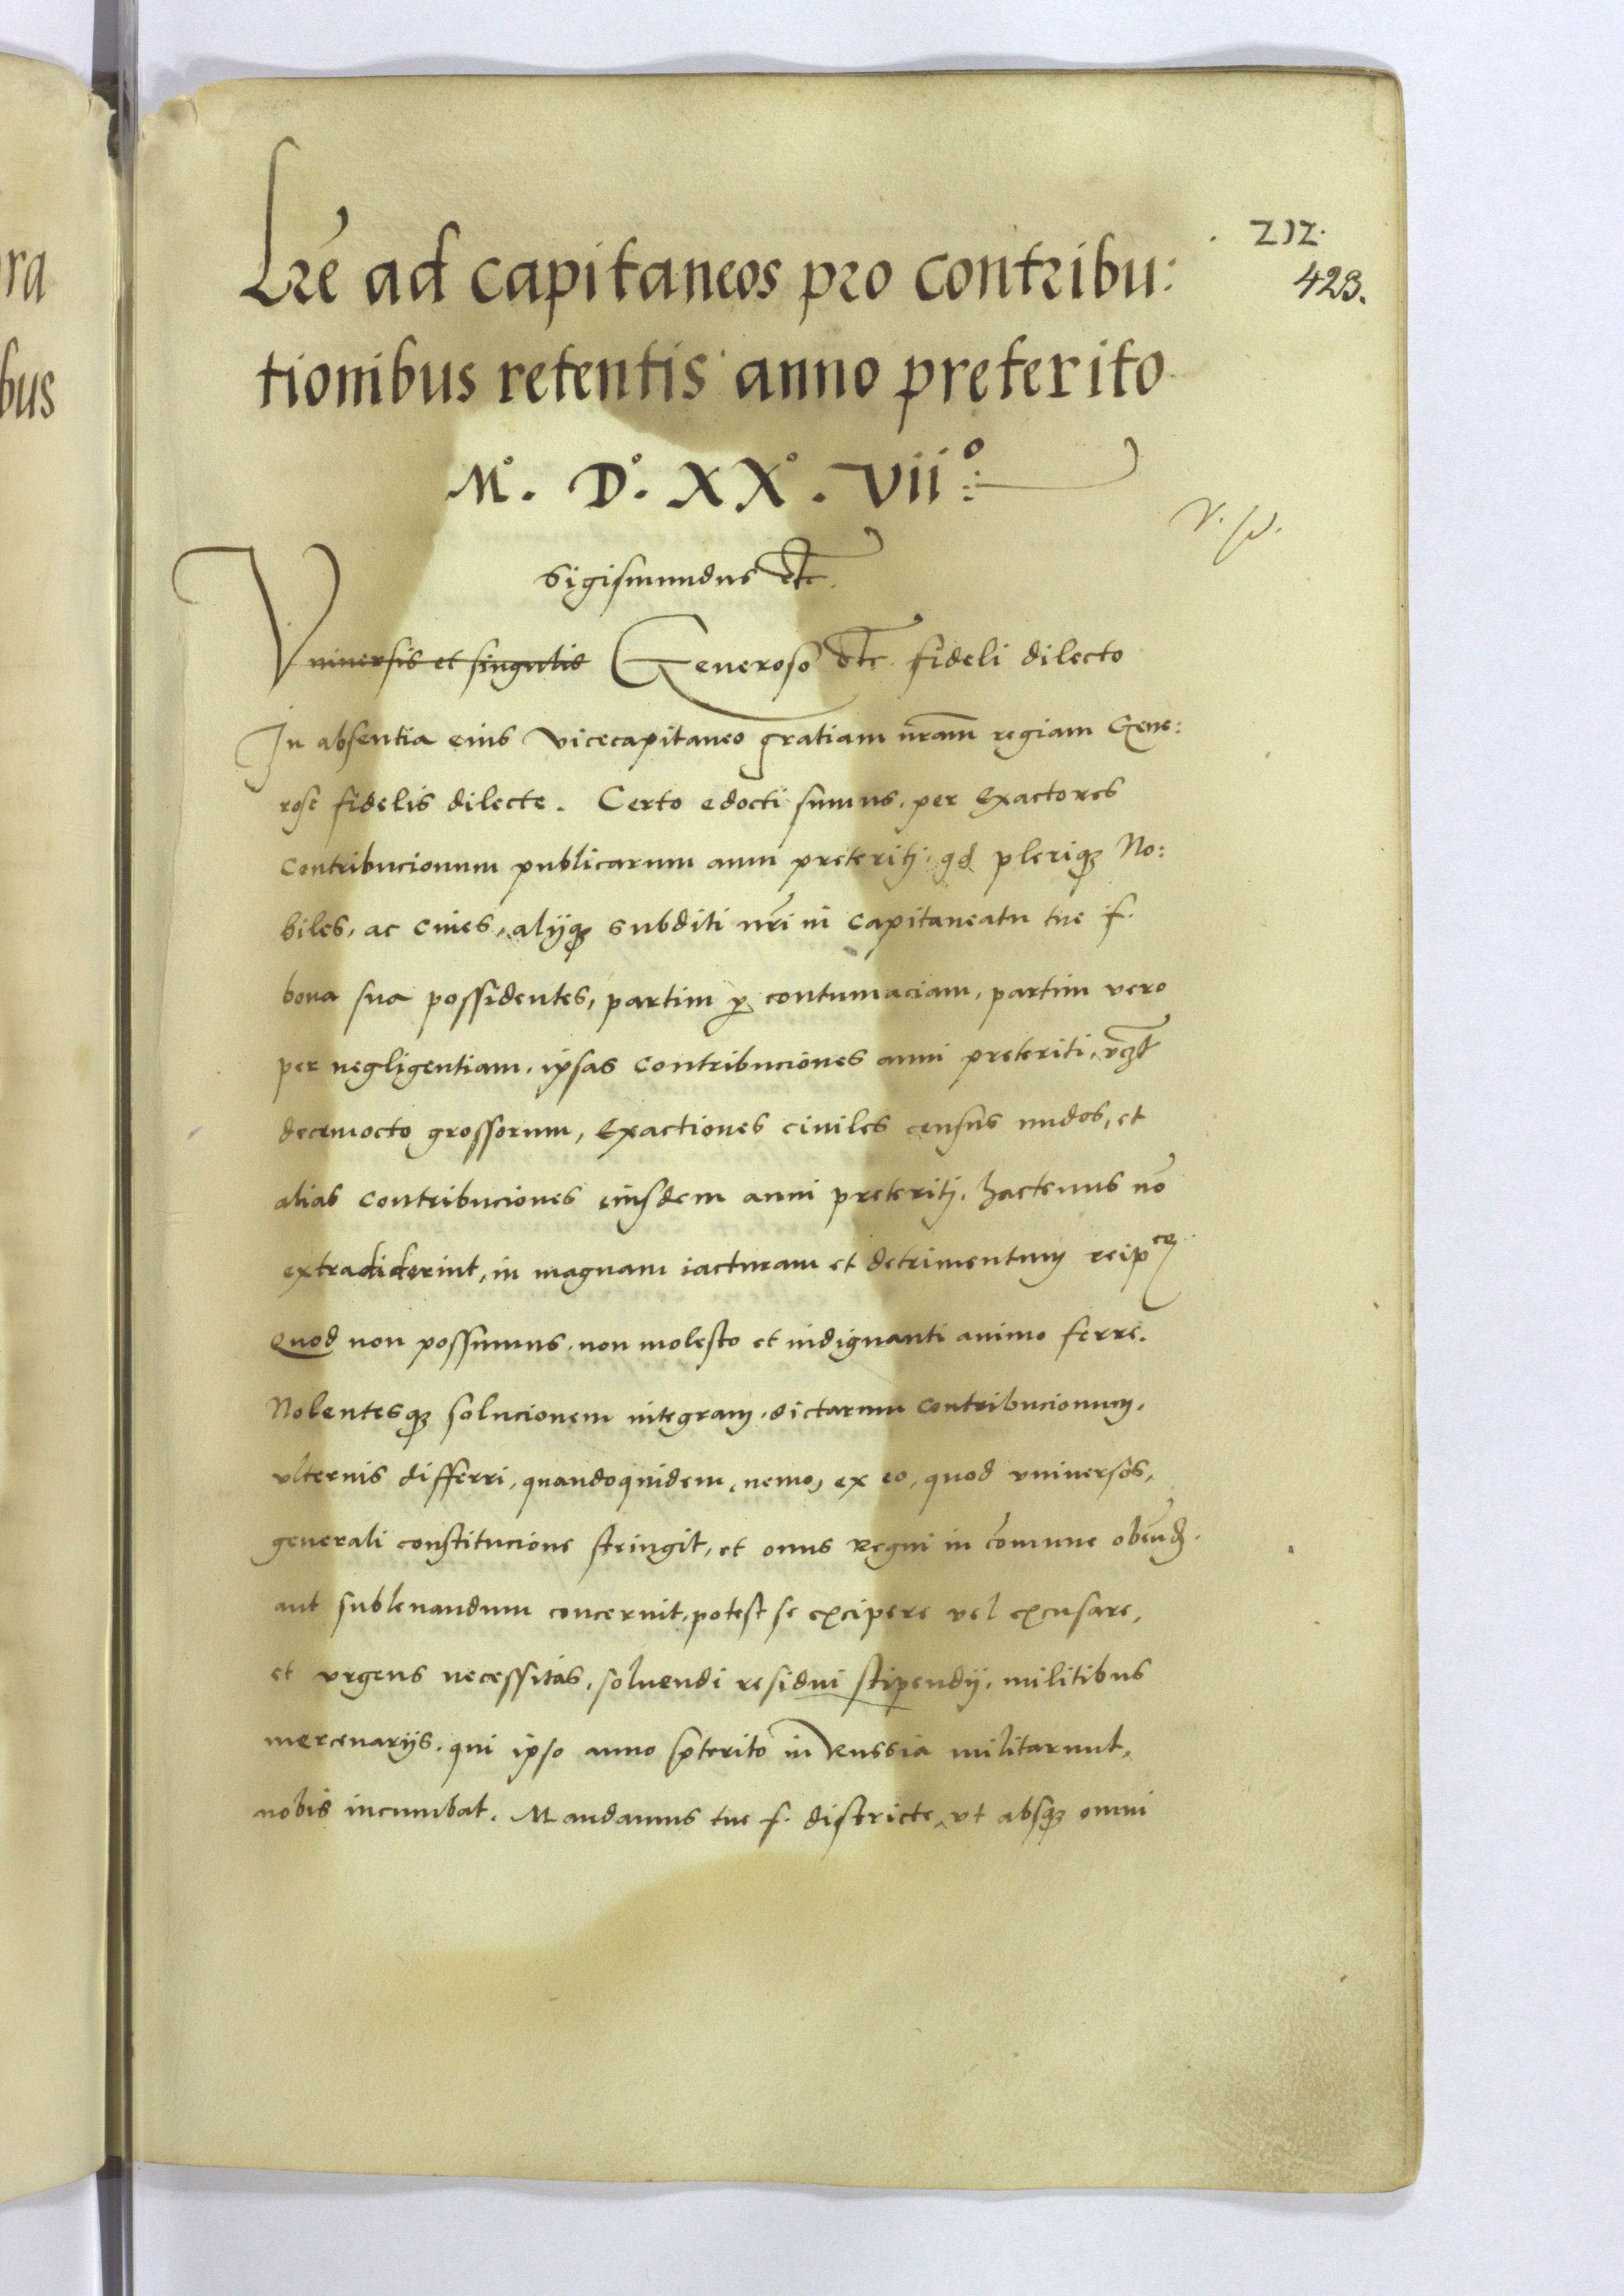 212.
423.
Lre ad capitaneos pro contribu:
tionibus retentis anno preterito
M°. D°. XX°. vii°:
Sigismundus etc.
Vniuersis et singulis Generoso etc. fideli dilecto
In absentia eius vicecapitaneo gratiam nram regiam Gene:
rose fidelis dilecte. Certo edocti sumus, per Exactores
contribucionum publicarum anni preteritj, qd pleriqȝ No:
biles, ac ciues, alijqȝ subditi nri in capitaneatu tue f.
bona sua possidentes, partim ꝑ contumaciam, partim vero
per negligentiam, ipsas contribuciones anni preteriti, vcȝt
decemocto grossorum, Exactiones ciuiles census nudos, et
alias contribuciones eiusdem anni preteritj, hactenus nō
extradiderint, in magnam iacturam et detrimentum reipce
Quod non possumus, non molesto et indignanti animo ferre.
Nolentesqȝ solucionem integram, dictarum contribucionum,
vlterius differri, quandoquidem, nemo, ex eo, quod vniuersos,
generali constitucione stringit, et onus Regni in cōmune obeund
aut subleuandum concernit, potest se excipere vel excusare,
et vrgens necessitas, soluendi residui stipendij, militibus
mercenarijs, qui ipso anno pterito in Russia militarunt,
nobis incumbat. Mandamus tue f. districte, vt absqȝ omni